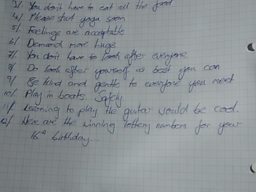 3/ You don't have to eat all the food
4/ Please start yoga soon
5/ Feelings are acceptable
6/ Demand more hugs
7/ You don't have to look after everyone
8/ Do look after yourself as best you can
9/ Be kind and gentle to everyone you meet
10/ Play in boats. Safely
11/ Learning to play the guitar would be cool
12/ Here are the winning lottery numbers for your
16th birthday